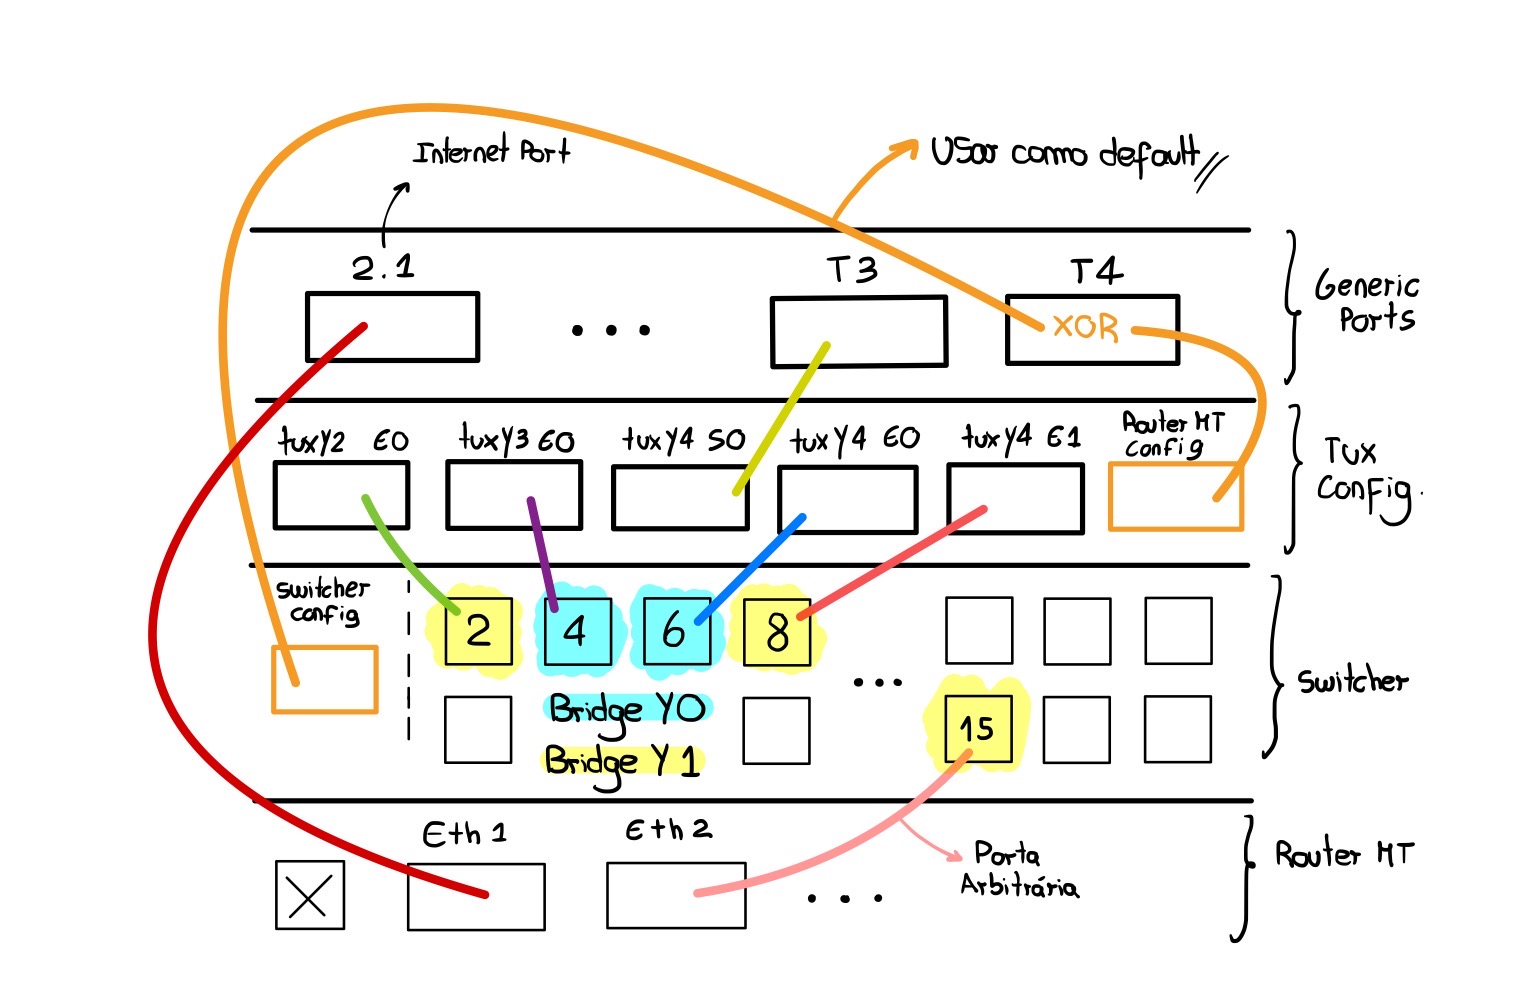 Internet Port
Usar como default
2.1
T3
T4
XOR
Generic
Ports
tuxY2 E0
tuxY3 E0
tuxY4 S0
tuxY4 E0
tuxY4 E1
Router MT
config
Tux
Config.
switcher
config
2
4
6
8
Bridge Y0
Bridge Y1
15
Switcher
Eth 1
Eth 2
Porta
Arbitrária
Router MT